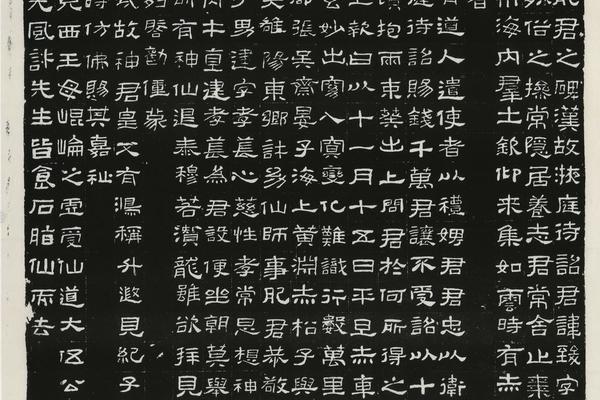 肥君之碑漢故掖庭待詔君諱致字
殊俗之操常隱居養志君常舍止棗
布海內群士欽仰來集如雲時有赤
者
有道人遣使者以禮娉君君忠以衛
庭待詔賜錢千萬君讓不受詔以十
頃抱兩束葵出上問君於何所得之
上報曰以十一月十五日平旦赤車
玄妙出窈入冥變化難識行數萬里
郡張吳齋晏子海上黃淵赤松子與
夫雒陽東鄉許幼仙師事肥君恭敬
子男建字孝萇心慈性孝常思想神
丙午直建孝萇為君設便坐朝莫舉
所有神仙退泰穆若潛龍雖欲拜見
列啟勸僮蒙
哉故神君皇父有鴻稱升遐見紀子
時仿佛賜其嘉祉
見西王母崐崘之虛受仙道大伍公
先風許先生皆食石脂仙而去